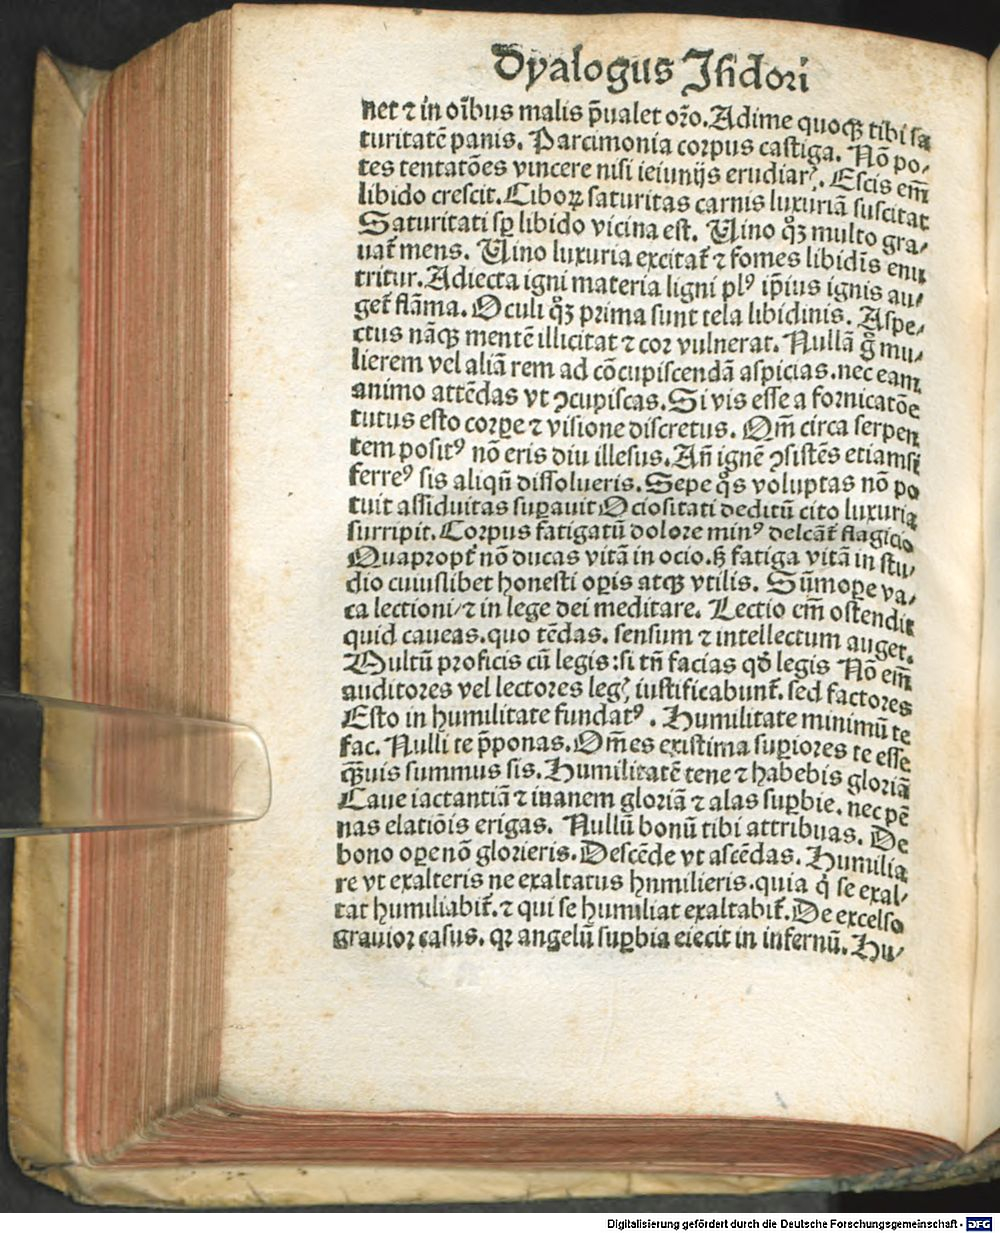 Dyalogus Isidori
net ⁊ in oı̄bus malis p̄ualet oꝛ̄o. Adime quoqꝫ tibi sa
turitatē panis. Parcimonia corpus castiga. Nō po-
tes tentatōes vincere nisi ieiunijs erudiarꝭ. Escis em̄
libido crescit. Ciboꝝ saturitas carnis luxuriā suscitat
Saturitati sꝑ libido vicina est. Uino qͦꝫ multo gra-
uat̄ mens. Uino luxuria excitat̄ ⁊ fomes libidīs enu
tritur. Adiecta igni materia ligni plꝰ ip̄ius ignis au-
get̄ flāma. Oculi qͦꝫ prima sunt tela libidinis. Aspe-
ctus nāqꝫ mentē illicitat ⁊ cor vulnerat. Nullā gͦ mu-
lierem vel aliā rem ad cōcupiscendā aspicias. nec eam
animo attēdas vt ꝯcupiscas. Si vis esse a fornicatōe
tutus esto corꝑe ⁊ visione discretus. Qm̄ circa serpen
tem positꝰ nō eris diu illesus. Añ ignē ꝯsistēs etiamsi
ferreꝰ sis aliqñ dissolueris. Sepe qͦs voluptas nō po
tuit assiduitas suꝑauit Ociositati deditū cito luxuria
surripit. Corpus fatigatū dolore minꝰ delcāt̄ flagicio
Quapropt̄ nō ducas vitā in ocio. sꝫ fatiga vitā in stu-
dio cuiuslibet honesti oꝑis atqꝫ vtilis. Sūmoꝑe va-
ca lectioni/ ⁊ in lege dei meditare. Lectio em̄ ostendit
quid caueas. quo tēdas. sensum ⁊ intellectum auget.
Multū proficis cū legis: si tn̄ facias qd̄ legis Nō eim̄
auditores vel lectores legꝭ iustificabunt̄. sed factores
Esto in humilitate fundatꝰ. Humilitate minimū te
fac. Nulli te p̄ponas. Om̄es existima suꝑiores te esse
qꝫuis summus sis. Humilitatē tene ⁊ habebis gloriā
Caue iactantiā ⁊ inanem gloriā ⁊ alas suꝑbie. nec pē
nas elatiōis erigas. Nullū bonū tibi attribuas. De
bono oꝑe nō glorieris. Descēde vt ascēdas. Humilia
re vt exalteris ne exaltatus hnmilieris. quia qͥ se exal-
tat humiliabit̄. ⁊ qui se humiliat exaltabit̄. De excelso
grauior casus. qꝛ angelū suꝑbia eiecit in infernū. Hu-
Digitalisierung gefördert durch die Deutsche Forschungsgemeinschaft - DFG